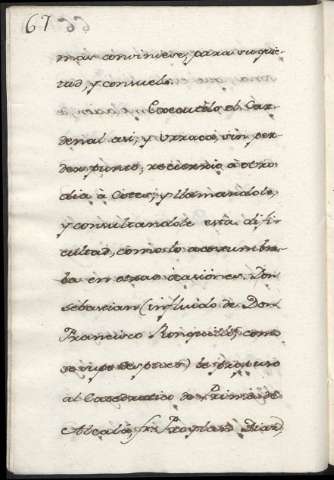 67
mas conviniese, para su quie-
tud, y consuelo.
Executólo el Car-
denal asi; y Urraca, sin per-
der punto, recurrió à otro
dia à Cotes; y llamandole,
y consultandole esta difi-
cultad, como lo acostumbra-
ba en otras ocasiones. Don
Sebastian (influido de Don
Francisco Ronquillo, como
se supo despues) le propuso
al Catedratico de Prima de
Alcalá, fr. Froylan Diaz,